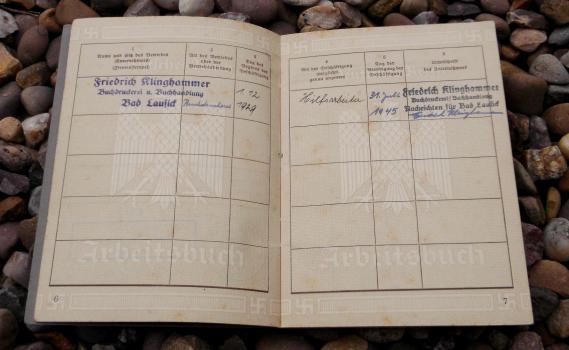 1
Name und Sitz des Betriebes
(Unternehmers)
2
Art des Betriebes
oder der
Betriebsabteilung
3
Tag des
Beginns der
Beschäftigung
Friedrich Klinghammer
Buchdruckerei u. Buchhandlung
Bad Lausick
1.12
1929
Arbeitsbuch
6
4
Art der Beschäftigung
(möglichst
genau angeben)
5
Tag der
Beendigung der
Beschäftigung
6
Unterschrift
des Unternehmers
Hilfsarbeiter
31. Juli
1945
Friedrich Klinghammer
Buchdruckerei / Buchhandlung
Nachrichten für Bad Lausick
Arbeitsbuch
7